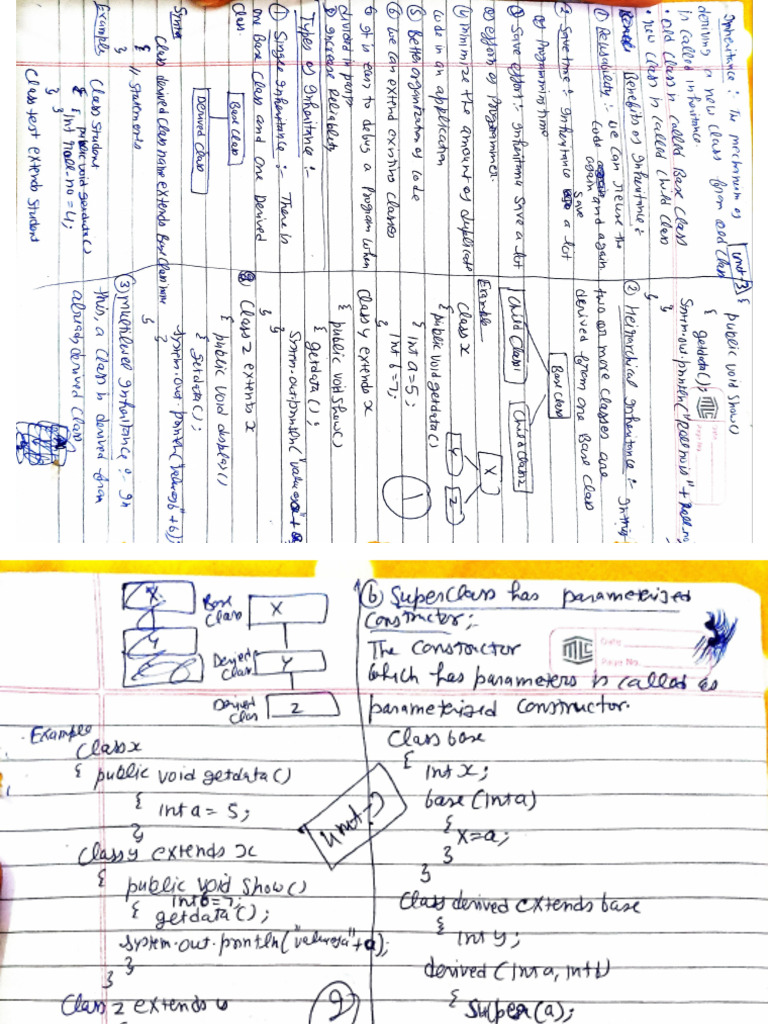 Unit-3
Inheritance :- The mechanism of
deriving a new class from old class
is called inheritance.
• old class is called Base class
• new class is called child class
Benefits of Inheritance :-
① Reusability :- we can reuse the
code again and again
2- Save time :- Inheritance save a lot
of Programming time
③ Save effort :- Inheritance save a lot
of efforts of Programmer.
(4) minimize the amount of duplicate
code in an application
⑤ Better organization of code
⑥ we can extend existing classes
It is easy to debug a program when
divided in parts
Increase Reliability
Types of Inheritance :-
① Single Inheritance :- There is
one Base class and one Derived
class.
Base class
Derived class
Syntax
class derived class name extends Base class name
{
// statements
}
Example
class Student
{ public void getdata()
{ int roll-no = 4;
} }
class test extends student
{ public void show()
{ getdata();
System.out.println("Roll no is" + roll-no
}
}
② Heirarchical Inheritance :- In this
two or more classes are
derived from one Base class
Base class
Child class 1
Child class 2
Example
class x
{ public void getdata()
{ int a=5;
int b=7;
}
X
Y
Z
①
class y extends x
{ public void show()
{ getdata();
System.out.println("value of a" + a
}
}
class z extends x
{ public void display()
{ getdata();
System.out.println("value of b"+b);
}
}
③ multilevel Inheritance :- In
this, a class is derived from
already derived class
X
Y
Base class
X
Derived class
Y
Derived class
Z
Example
class x
{ public void getdata()
{ int a = 5;
}
}
class y extends x
{ public void show()
int b=7;
{ getdata();
System.out.println("value of a"+a);
}
}
class z extends y
②
⑥ Superclass has parameterized
constructor;-
MLC
Date
Page No.
The constructor
which has parameters is called as
parameterized constructor.
Unit-3
class base
{
int x;
base (int a)
{
x=a;
}
}
class derived extends base
{
int y;
derived (int a, int b)
{ super(a);